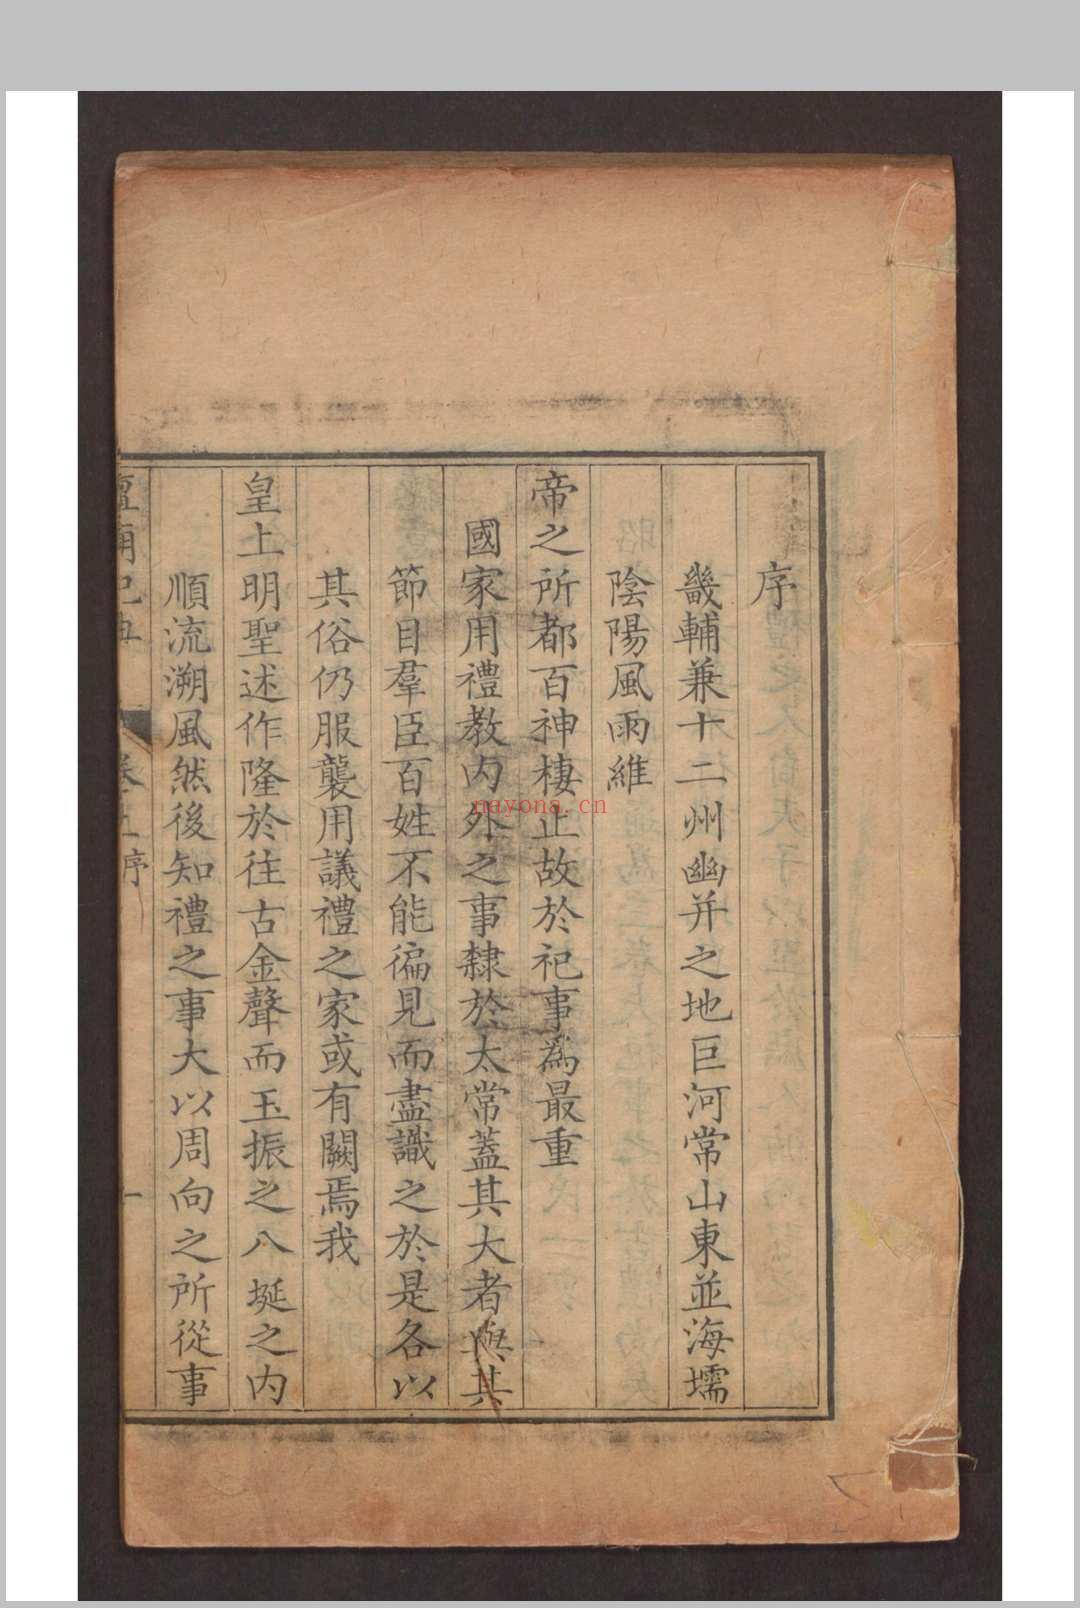 序
畿輔兼十二州幽并之地巨河常山東並海壖
陰陽風雨維
帝之所都百神棲止故於祀事為最重
國家用禮教內外之事隸於太常蓋其大者與其
節目羣臣百姓不能徧見而盡識之於是各以
其俗仍服襲用議禮之家或有闕焉我
皇上明聖述作隆於往古金聲而玉振之八埏之內
順流溯風然後知禮之事大以周向之所從事
卷上序
一
nayona.cn